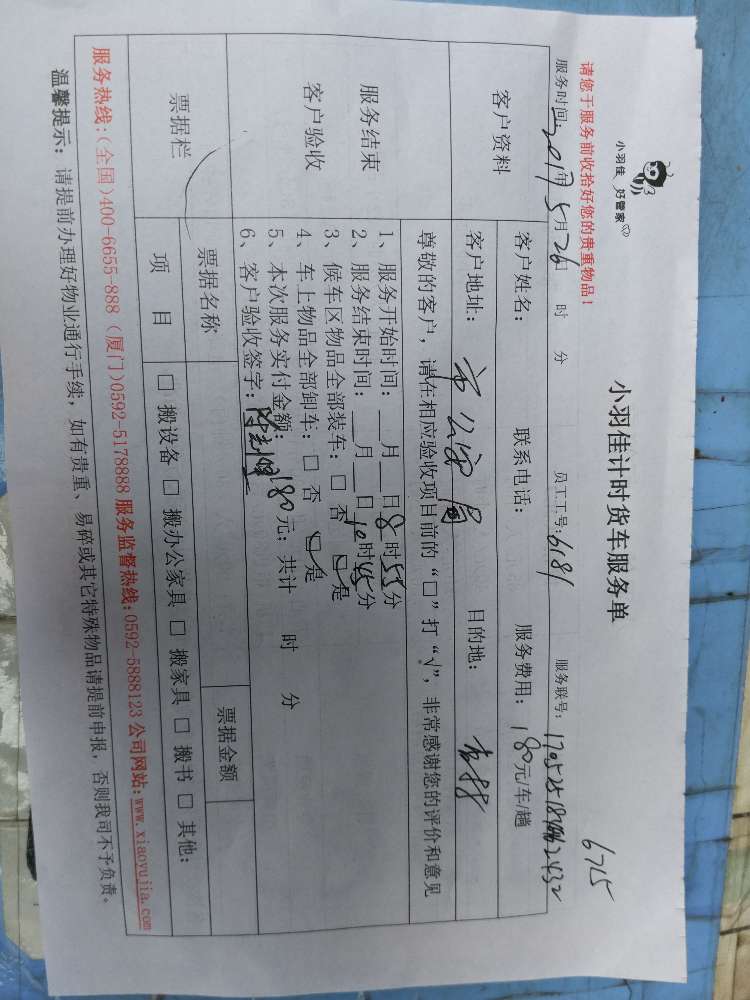 小羽佳 好管家
6715
小羽佳计时货车服务单
请您于服务前收拾好您的贵重物品!
服务时间: 2017年5月26日 时 分 员工工号: 6181 服务联号:
客户资料
客户姓名: 联系电话: 服务费用: 180元/车/趟
客户地址: 市公安局 目的地:
服务结束
客户验收
尊敬的客户,请在相应验收项目前的“□”打“√”,非常感谢您的评价和意见
1、服务开始时间:__月__日8时55分
2、服务结束时间:__月__日10时45分
3、候车区物品全部装车:□ 否 □ 是
4、车上物品全部卸车:□ 否 □ 是
5、本次服务实付金额: 180元;共计 时 分
6、客户验收签字:
票据栏
票据名称 票据金额
项 目 □ 搬设备 □ 搬办公家具 □ 搬家具 □ 搬书 □ 其他:
服务热线:(全国)400-6655-888 (厦门)0592-5178888 服务监督热线:0592-5888123 公司网站:www.xiaoyujia.com
温馨提示:请提前办理好物业通行手续,如有贵重、易碎或其它特殊物品请提前申报,否则我司不予负责。